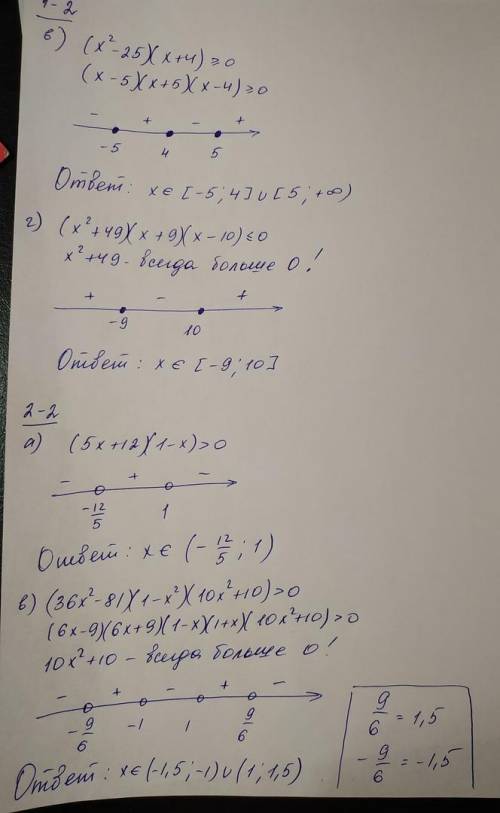 1-2
в) (x²-25)(x+4)≥0
(x-5)(x+5)(x-4)≥0
- + - +
-5 4 5
Ответ: x∈[-5;4]∪[5;+∞)
г) (x²+49)(x+9)(x-10)≤0
x²+49 - всегда больше 0!
+ - +
-9 10
Ответ: x∈[-9;10]
2-2
а) (5x+12)(1-x)>0
- + -
-12/5 1
Ответ: x∈(-12/5;1)
в) (36x²-81)(1-x²)(10x²+10)>0
(6x-9)(6x+9)(1-x)(1+x)(10x²+10)>0
10x²+10 - всегда больше 0!
- + - + -
-9/6 -1 1 9/6
9/6 = 1,5
-9/6 = -1,5
Ответ: x∈(-1,5;-1)∪(1;1,5)